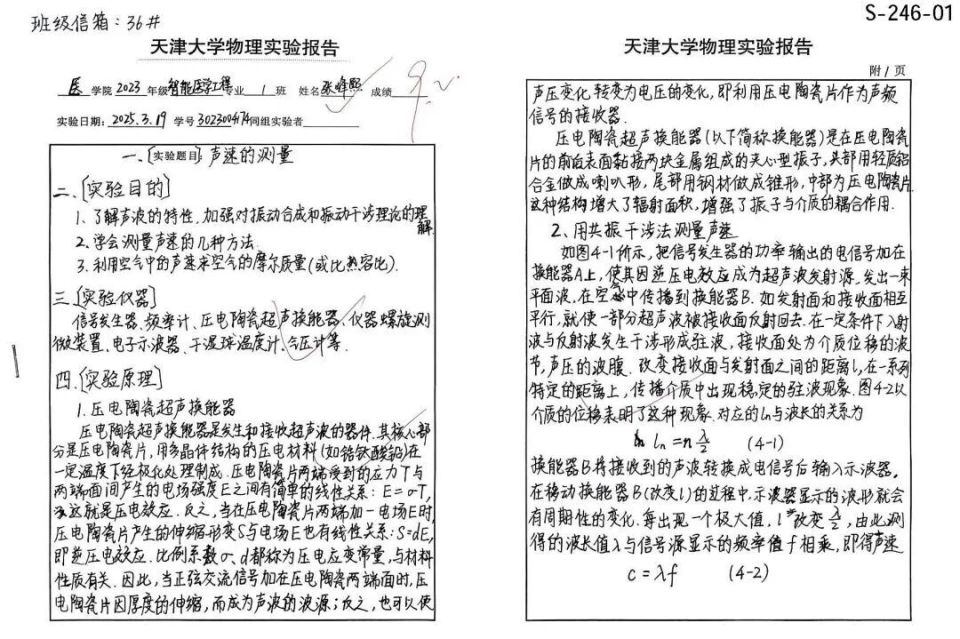 S-246-01
班级信箱：36#
天津大学物理实验报告
医 学院 2023 年级 智能医学工程 专业 1 班 姓名 张峰熙 成绩
实验日期：2025.3.19 学号 3023004174 同组实验者
一、[实验题目] 声速的测量
二、[实验目的]
1、了解声波的特性，加强对振动合成和振动干涉理论的理解
2、学会测量声速的几种方法
3、利用空气中的声速求空气的摩尔质量(或比热容比).
三、[实验仪器]
信号发生器、频率计、压电陶瓷超声换能器、仪器螺旋测
微装置、电子示波器、干湿球温度计、气压计等.
四、[实验原理]
1、压电陶瓷超声换能器
压电陶瓷超声换能器是发生和接收超声波的器件.其核心部
分是压电陶瓷片，用多晶体结构的压电材料(如锆钛酸铅)在
一定温度下经极化处理制成.压电陶瓷片两端受到的应力T与
两端面间产生的电场强度E之间有简单的线性关系：E=σT，
这就是压电效应.反之，当在压电陶瓷片两端加一电场E时，
压电陶瓷片产生的伸缩形变S与电场E也有线性关系：S=dE，
即逆压电效应.比例系数σ、d都称为压电应变常量，与材料
性质有关.因此，当正弦交流信号加在压电陶瓷两端面时，压
电陶瓷片因厚度的伸缩，而成为声波的波源；反之，也可以使
天津大学物理实验报告
附 1 页
声压变化转变为电压的变化，即利用压电陶瓷片作为声频
信号的接收器.
压电陶瓷超声换能器(以下简称换能器)是在压电陶瓷
片的前后表面黏接两块金属组成的夹心型振子，头部用轻质铝
合金做成喇叭形，尾部用钢材做成锥形，中部为压电陶瓷片.
这种结构增大了辐射面积，增强了振子与介质的耦合作用.
2、用共振干涉法测量声速
如图4-1所示，把信号发生器的功率输出的电信号加在
换能器A上，使其因逆压电效应成为超声波发射源，发出一束
平面波，在空气中传播到换能器B.如发射面和接收面相互
平行，就使一部分超声波被接收面反射回去.在一定条件下入射
波与反射波发生干涉形成驻波，接收面处为介质位移的波
节，声压的波腹.改变接收面与发射面之间的距离l，在一系列
特定的距离上，传播介质中出现稳定的驻波现象.图4-2以
介质的位移表明了这种现象.对应的ln与波长的关系为
ln=n λ/2 (4-1)
换能器B将接收到的声波转换成电信号后输入示波器，
在移动换能器B(改变l)的过程中，示波器显示的波形就会
有周期性的变化.每出现一个极大值，l改变λ/2，由此测
得的波长值λ与信号源显示的频率值f相乘，即得声速
c=λf (4-2)